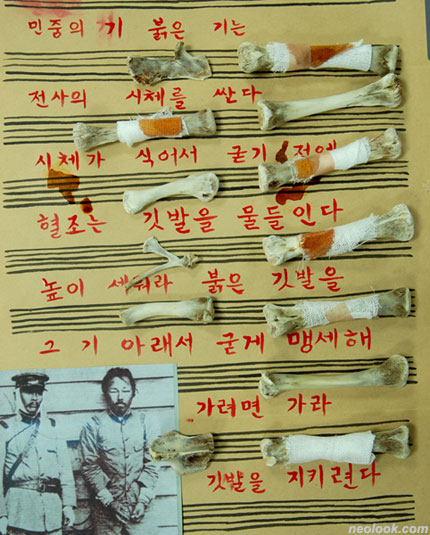 민중의 기 붉은 기는
전사의 시체를 싼다
시체가 식어서 굳기 전에
혈조는 깃발을 물들인다
높이 세워라 붉은 깃발을
그 기 아래서 굳게 맹세해
가려면 가라
깃발을 지키련다
neolook.com